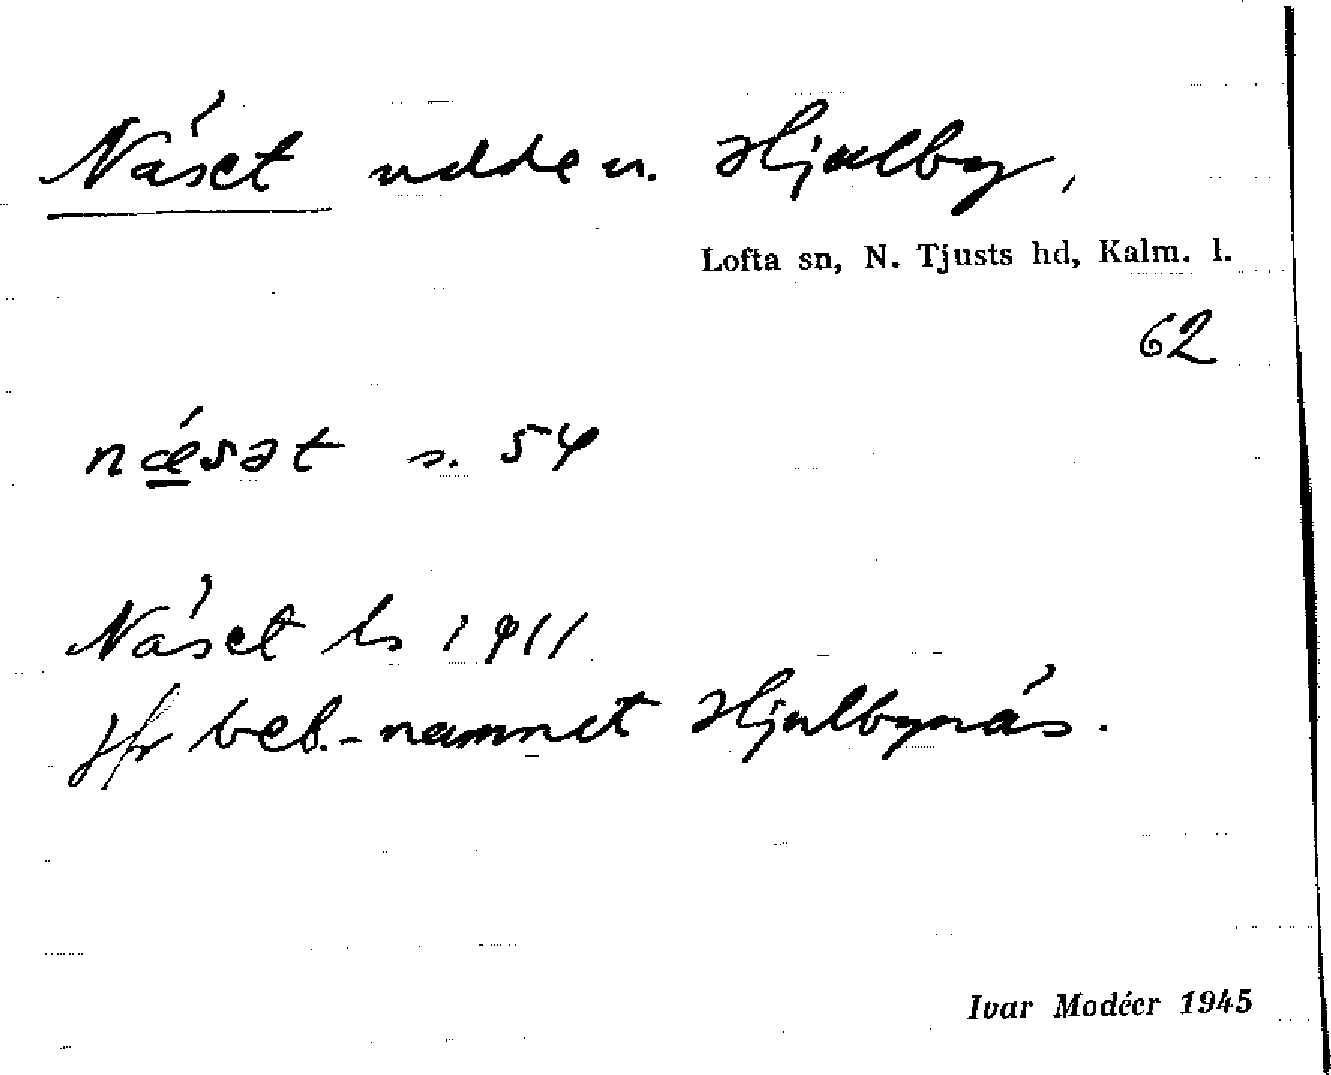 Näset udde u. Hjulby,
Lofta sn, N. Tjusts hd, Kalm. l.
62
næsət s. 54
Näset ls 1911
jfr beb.-namnet Hjulbynäs.
Ivar Modéer 1945